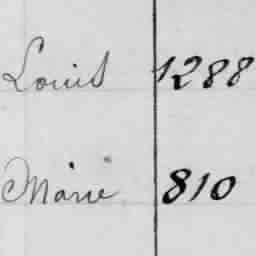 Louis 1288
Marie 810